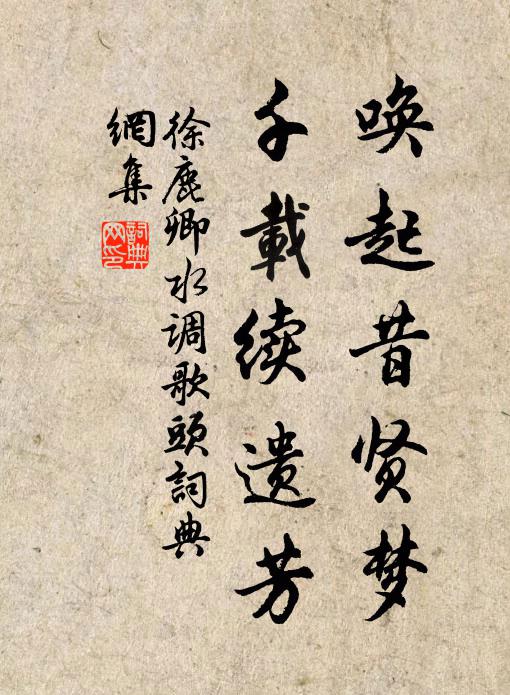 唤起昔贤梦
千載续遗芳
徐鹿卿水调歌頭詞典
網集
詞典网印